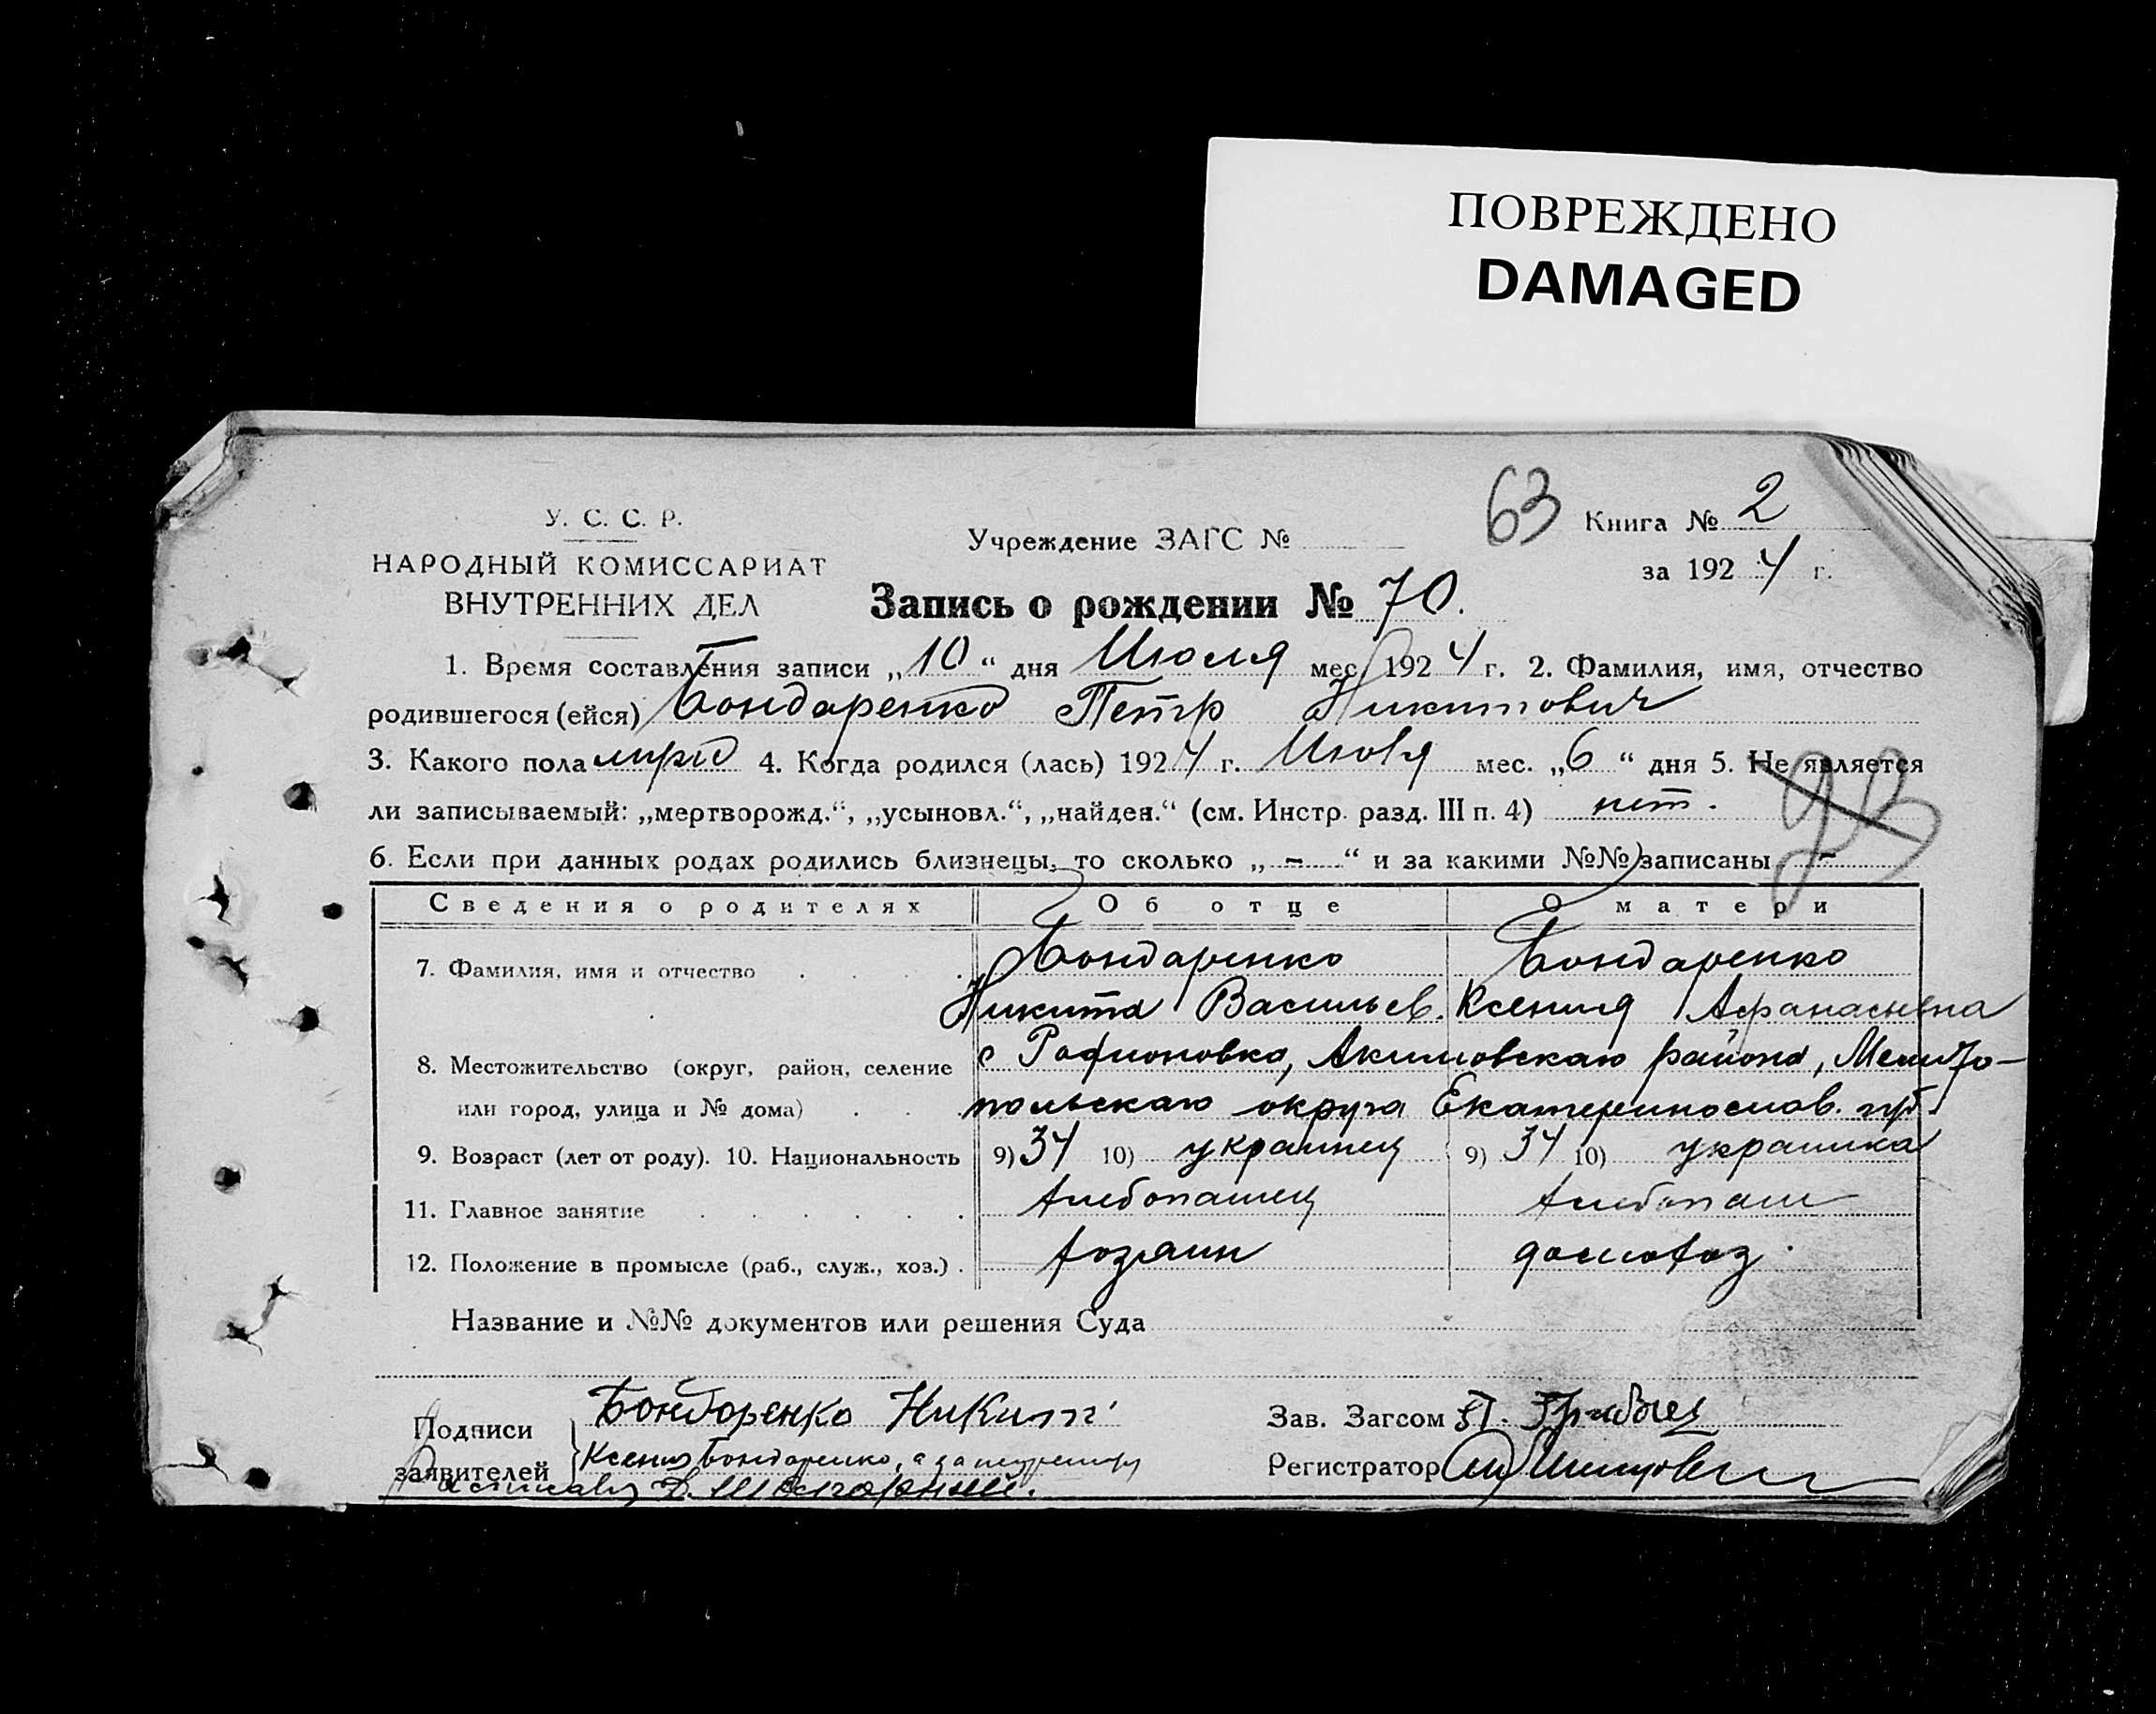 ПОВРЕЖДЕНО
DAMAGED
У. С. С. Р.
НАРОДНЫЙ КОМИССАРИАТ
ВНУТРЕННИХ ДЕЛ
Учреждение ЗАГС №
63
Книга № 2
за 1924 г.
Запись о рождении № 70.
1. Время составления записи „10“ дня Июля мес. 1924 г. 2. Фамилия, имя, отчество
родившегося (ейся) Бондаренко Петр Никитович
3. Какого пола 4. Когда родился (лась) 1924 г. мес. „6“ дня 5. Не является
ли записываемый: „мертворожд.“, „усыновл.“, „найден.“ (см. Инстр. разд. III п. 4) нет.
6. Если при данных родах родились близнецы, то сколько „-“ и за какими №№ записаны -
Сведения о родителях Об отце О матери
7. Фамилия, имя и отчество Бондаренко Бондаренко
Никита Васильев. Ксения Афанасьевна
8. Местожительство (округ, район, селение с Родионовка, Акимовскаго района, Мелито-
или город, улица и № дома) польскаго округа Екатеринослав. губ.
9. Возраст (лет от роду). 10. Национальность 9) 34 10) украинец 9) 34 10) украинка
11. Главное занятие хлебопашец хлебопаш
12. Положение в промысле (раб., служ., хоз.) хозяин домохоз.
Название и №№ документов или решения Суда
Подписи Бондоренко Никит
заявителей Ксения Бондаренко, а за неграмотну
Зав. Загсом
Регистратор